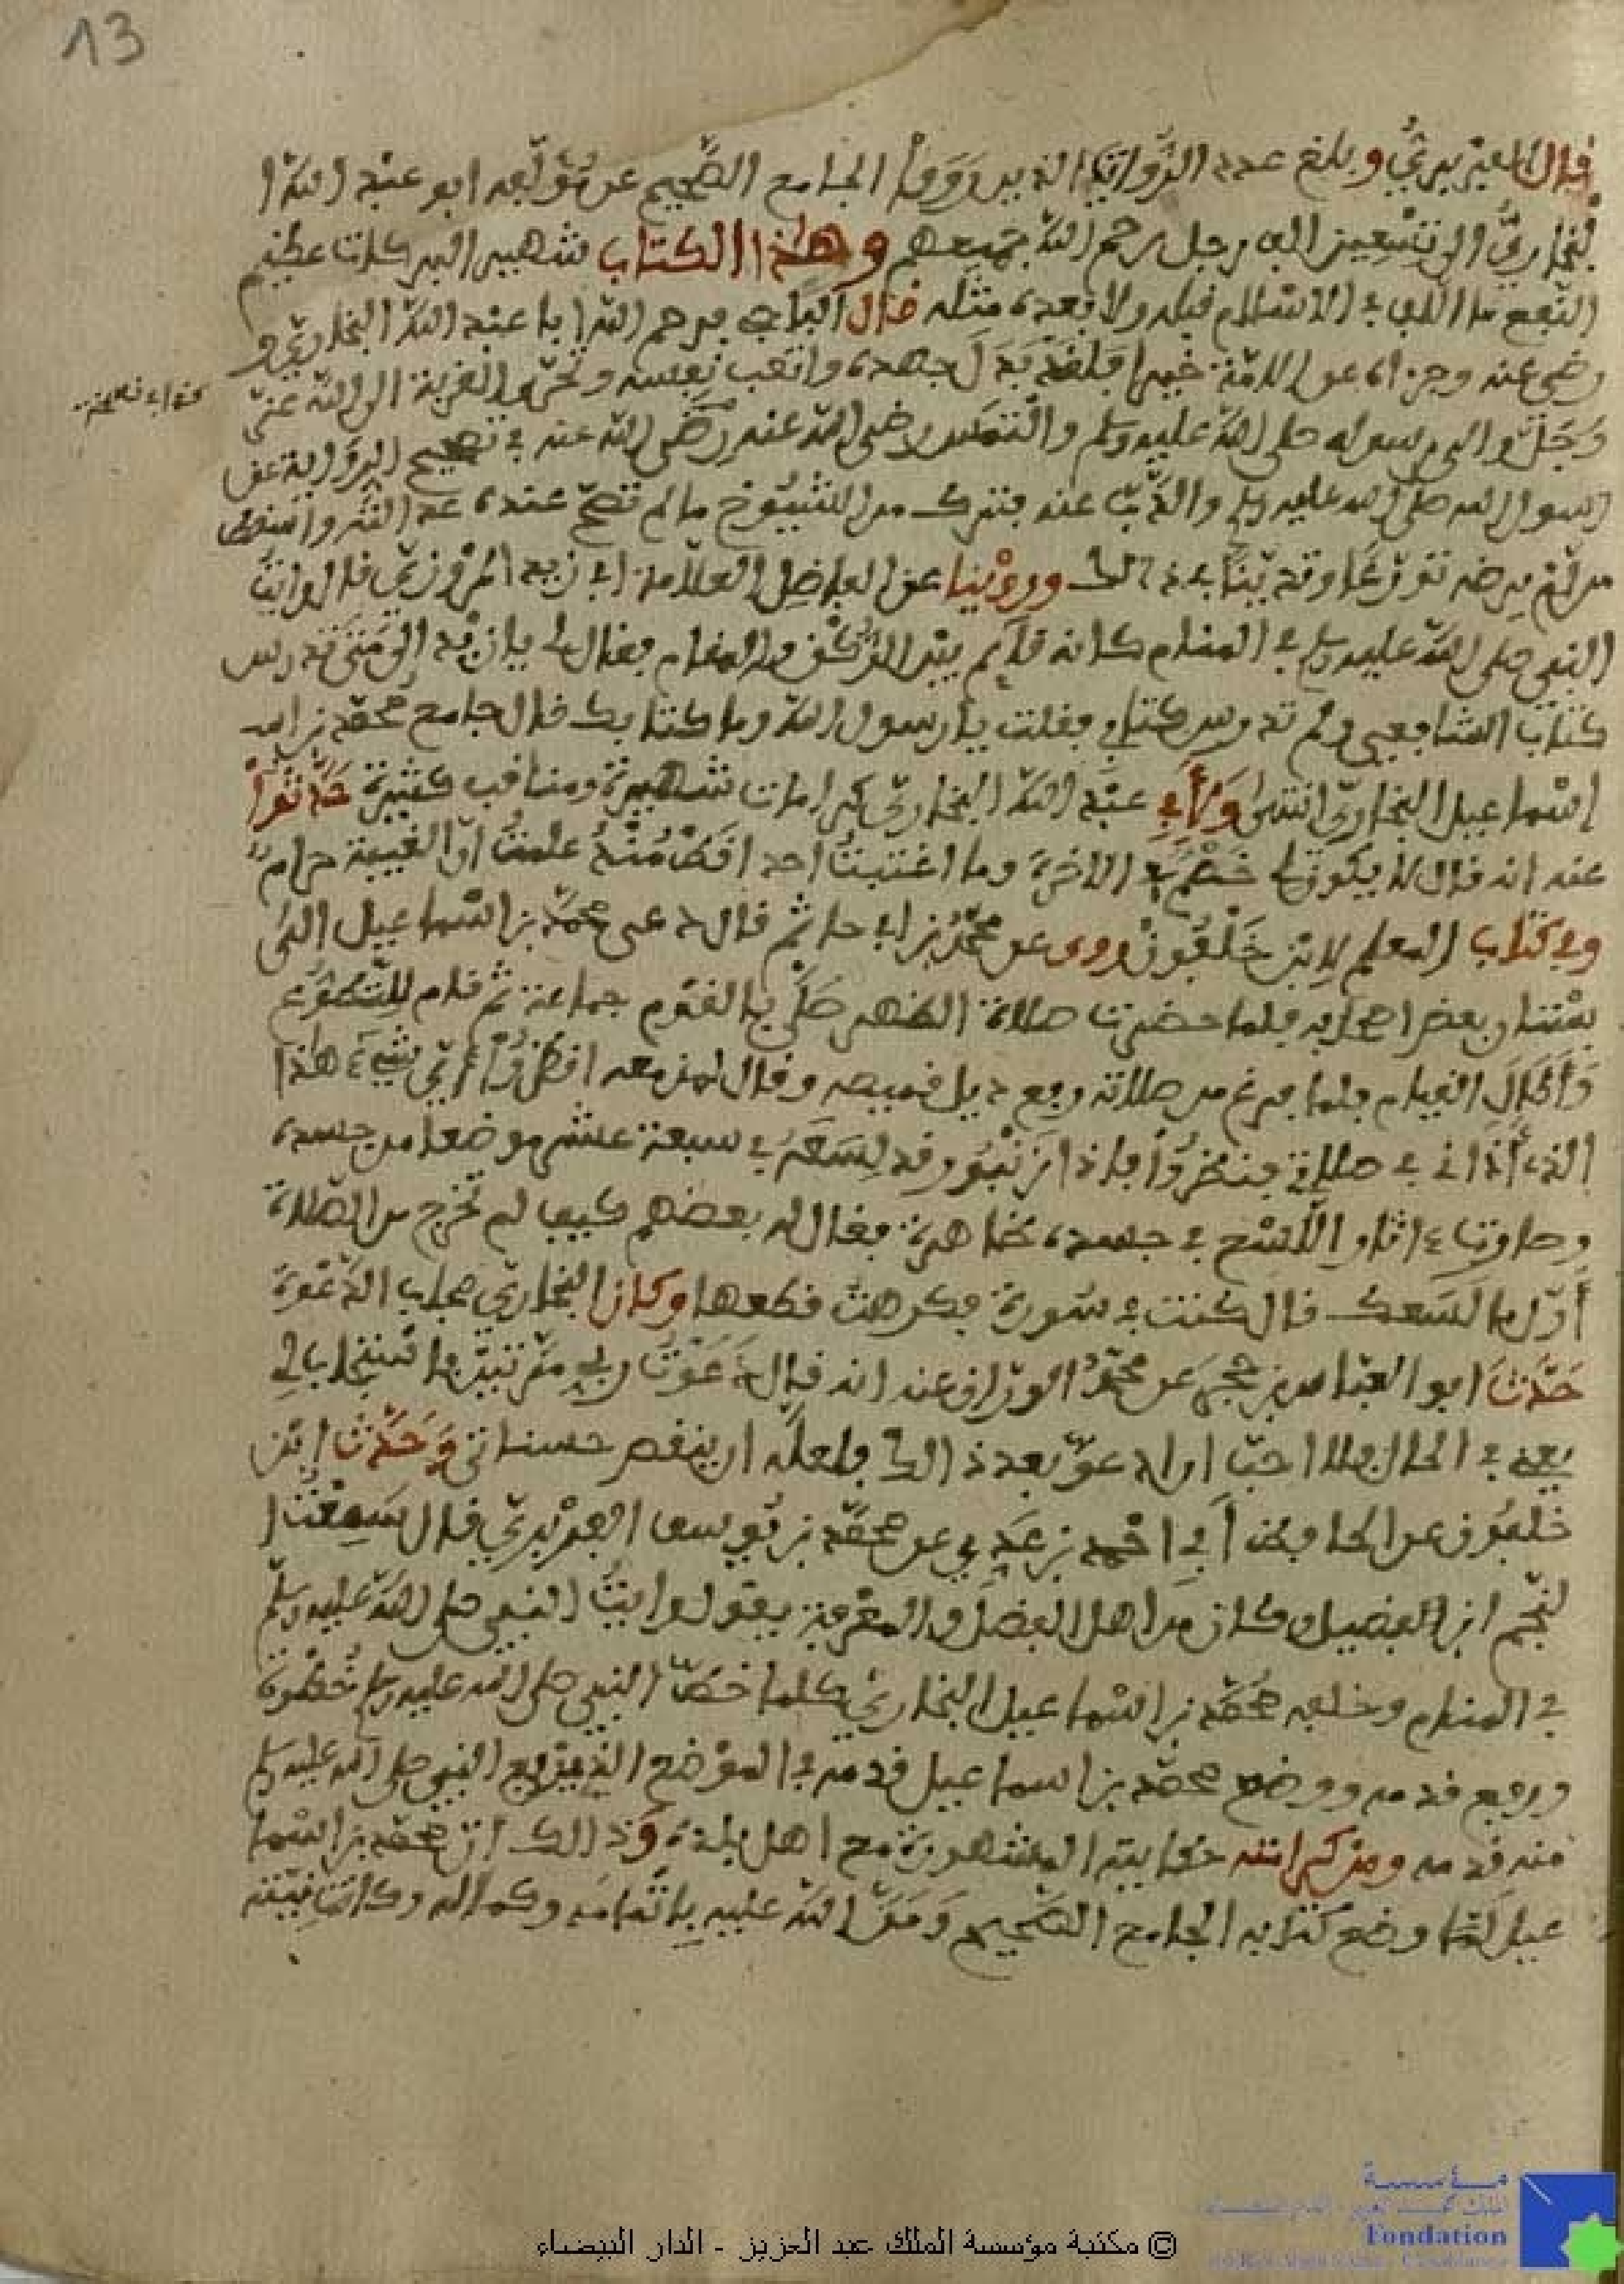 13
قال الفربري وبلغ عدد الرواة الذين رووا الجامع الصحيح عن مؤلفه ابو عبد الله ا
لبخاري الى تسعين الف رجل رحم الله جميعهم وهذا الكتاب شهير البركات عظيم
النفع ما الف في الاسلام قبله ولا بعده مثله قال الباجي يرحم الله ابا عبد الله البخاري و
رضي عنه وجزاه عن الامة خيرا فلقد بذل جهده واتعب نفسه وتحرى القربة الى الله عز
وجل والى رسوله صلى الله عليه وسلم والتمس رضى الله عنه رضى الله عنه في تصحيح الرواية عن
رسول الله صلى الله عليه وسلم والذب عنه بترك من الشيوخ ما لم تصح عنده
من لم يرضه تورعا وقد بينا ذالك وروينا عن الفاضل العلامة ابي زيد المروزي قال رايت
النبي صلى الله عليه وسلم في المنام كانه قائم بين الركن والمقام فقال لي يا ابا زيد الى متى تدرس
كتاب الشافعي ولم تدرس كتابي فقلت يا رسول الله وما كتابك قال جامع محمد بن
إسماعيل البخاري انتهى ولأبي عبد الله البخاري كرامات شهيرة ومناقب كثيرة حدثوا
عنه انه قال لا يكون لي خصم في الاخرة وما اغتبت احد اقط منذ علمت ان الغيبة حرام
وفي كتاب المعلم لابن خلفون روى عن محمد بن ابي حاتم قال دعى محمد بن اسماعيل الى
بستان بعض اصحابه فلما حضرت صلاة الظهر صلى بالقوم جماعة ثم قام للتطوع
وأطال القيام فلما فرغ من صلاته رفع ذيل قميصه وقال لمن معه انظروا أي شيء هذا
الذي أذاني في صلاتي فنظروا فاذا زنبور قد لسعه في سبعة عشر موضعا من جسده
وصارت ءاثار اللسع في جسده ظاهرة فقال له بعضهم كيف لم تخرج من الصلاة
أول ما لسعك قال كنت في سورة فكرهت قطعها وكان البخاري مجاب الدعوة
حدث ابو العباس بن عن محمد الوراق عنه انه قال دعوت ربي مرتين فاستجاب لي
يعني في الحال فلا احب ان ادعو بعد ذالك فلعله ان ينقص حسناتي وحدث ابن
خلفون عن الحافظ أبي احمد بن عدي عن محمد بن يوسف الفربري قال سمعت ا
لنجم ابن الفضيل وكان من اهل الفضل والمعرفة يقول رايت النبي صلى الله عليه وسلم
في المنام وخلفه محمد بن اسماعيل البخاري كلما خط النبي صلى الله عليه وسلم خطوة
ورفع قدمه ووضع محمد بن اسماعيل قدمه في الموضع الذي رفع النبي صلى الله عليه وسلم
منه قدمه ومن كراماته حكايته المشهورة مع اهل بلده وذالك ان محمد بن اسما
عيل لما وضع كتابه الجامع الصحيح ومن الله عليه باتمامه وكماله وكانت نيته
© مكتبة مؤسسة الملك عبد العزيز - الدار البيضاء
مؤسسة
Fondation